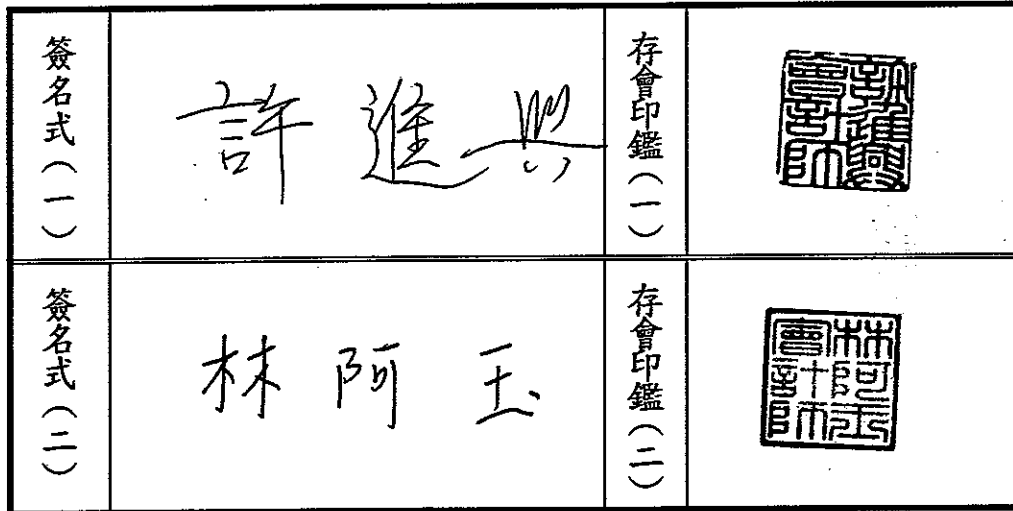 簽名式（一）
許進興
存會印鑑（一）
許進興會計師
簽名式（二）
林阿玉
存會印鑑（二）
林阿玉會計師